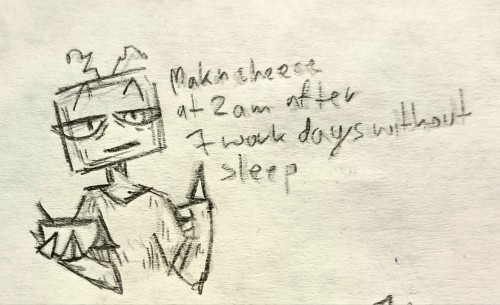 Makncheese
at 2am after
7 work days without
sleep